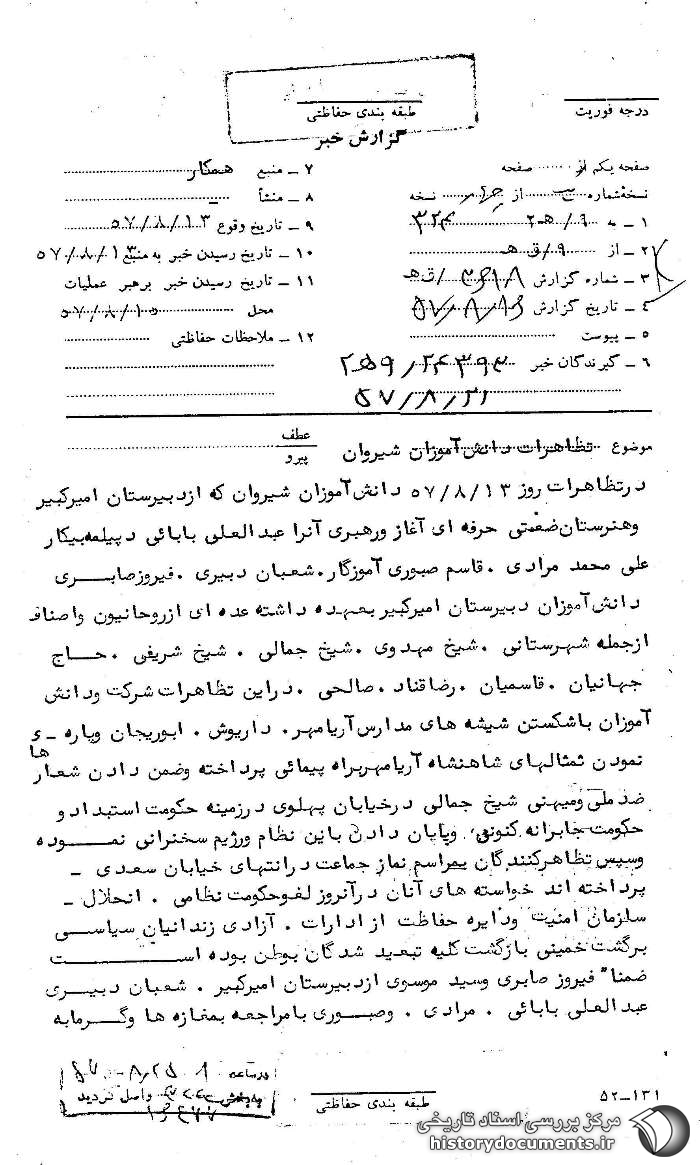 طبقه بندی حفاظتی
درجه فوریت
گزارش خبر
صفحه یکم از ...... صفحه
نسخهٔ شماره ...... از ...... نسخه
۱ – به ۹/هـ۲ ۳۲۴
۲ – از ۹/ق هـ
۳ – شماره گزارش /ق هـ
۴ – تاریخ گزارش
۵ – پیوست
۶ – گیرندگان خبر
۵۷/۸/۲۱
۷ – منبع همکار
۸ – منشأ –
۹ – تاریخ وقوع ۵۷/۸/۱۳
۱۰ – تاریخ رسیدن خبر به منبع ۵۷/۸/۱۳
۱۱ – تاریخ رسیدن خبر برهبر عملیات
محل ۵۷/۸/۱۵
۱۲ – ملاحظات حفاظتی
موضوع تظاهرات دانش آموزان شیروان
عطف
پیرو
درتظاهرات روز ۵۷/۸/۱۳ دانش آموزان شیروان که ازدبیرستان امیرکبیر
وهنرستان صنعتی حرفه ای آغاز ورهبری آنرا عبدالعلی بابائی دیپلمه بیکار
علی محمد مرادی . قاسم صبوری آموزگار . شعبان دبیری . فیروزصابری
دانش آموزان دبیرستان امیرکبیر بعهده داشته عده ای ازروحانیون واصناف
ازجمله شهرستانی . شیخ مهدوی . شیخ جمالی . شیخ شریفی . حاج
جهانیان . قاسمیان . رضاقناد . صالحی . دراین تظاهرات شرکت ودانش
آموزان باشکستن شیشه های مدارس آریامهر . داریوش . ابوریحان وپاره –
نمودن تمثالهای شاهنشاه آریامهربراه پیمائی پرداخته وضمن دادن شعارها ی
ضد ملی ومیهنی شیخ جمالی درخیابان پهلوی درزمینه حکومت استبداد و
حکومت جابرانه کنونی وپایان دادن باین نظام ورژیم سخنرانی نموده
وسپس تظاهرکنندگان بمراسم نماز جماعت درانتهای خیابان سعدی –
پرداخته اند خواسته های آنان درآنروز لغوحکومت نظامی . انحلال –
سازمان امنیت ودایره حفاظت از ادارات . آزادی زندانیان سیاسی
برگشت خمینی بازگشت کلیه تبعید شدگان بوطن بوده است
ضمنا" فیروز صابری وسید موسوی ازدبیرستان امیرکبیر . شعبان دبیری
عبدالعلی بابائی . مرادی . وصبوری بامراجعه بمغازه ها وگرمابه
درساعت
واصل گردید
طبقه بندی حفاظتی
۱۳۱–۵۲
مرکز بررسی اسناد تاریخی
historydocuments.ir